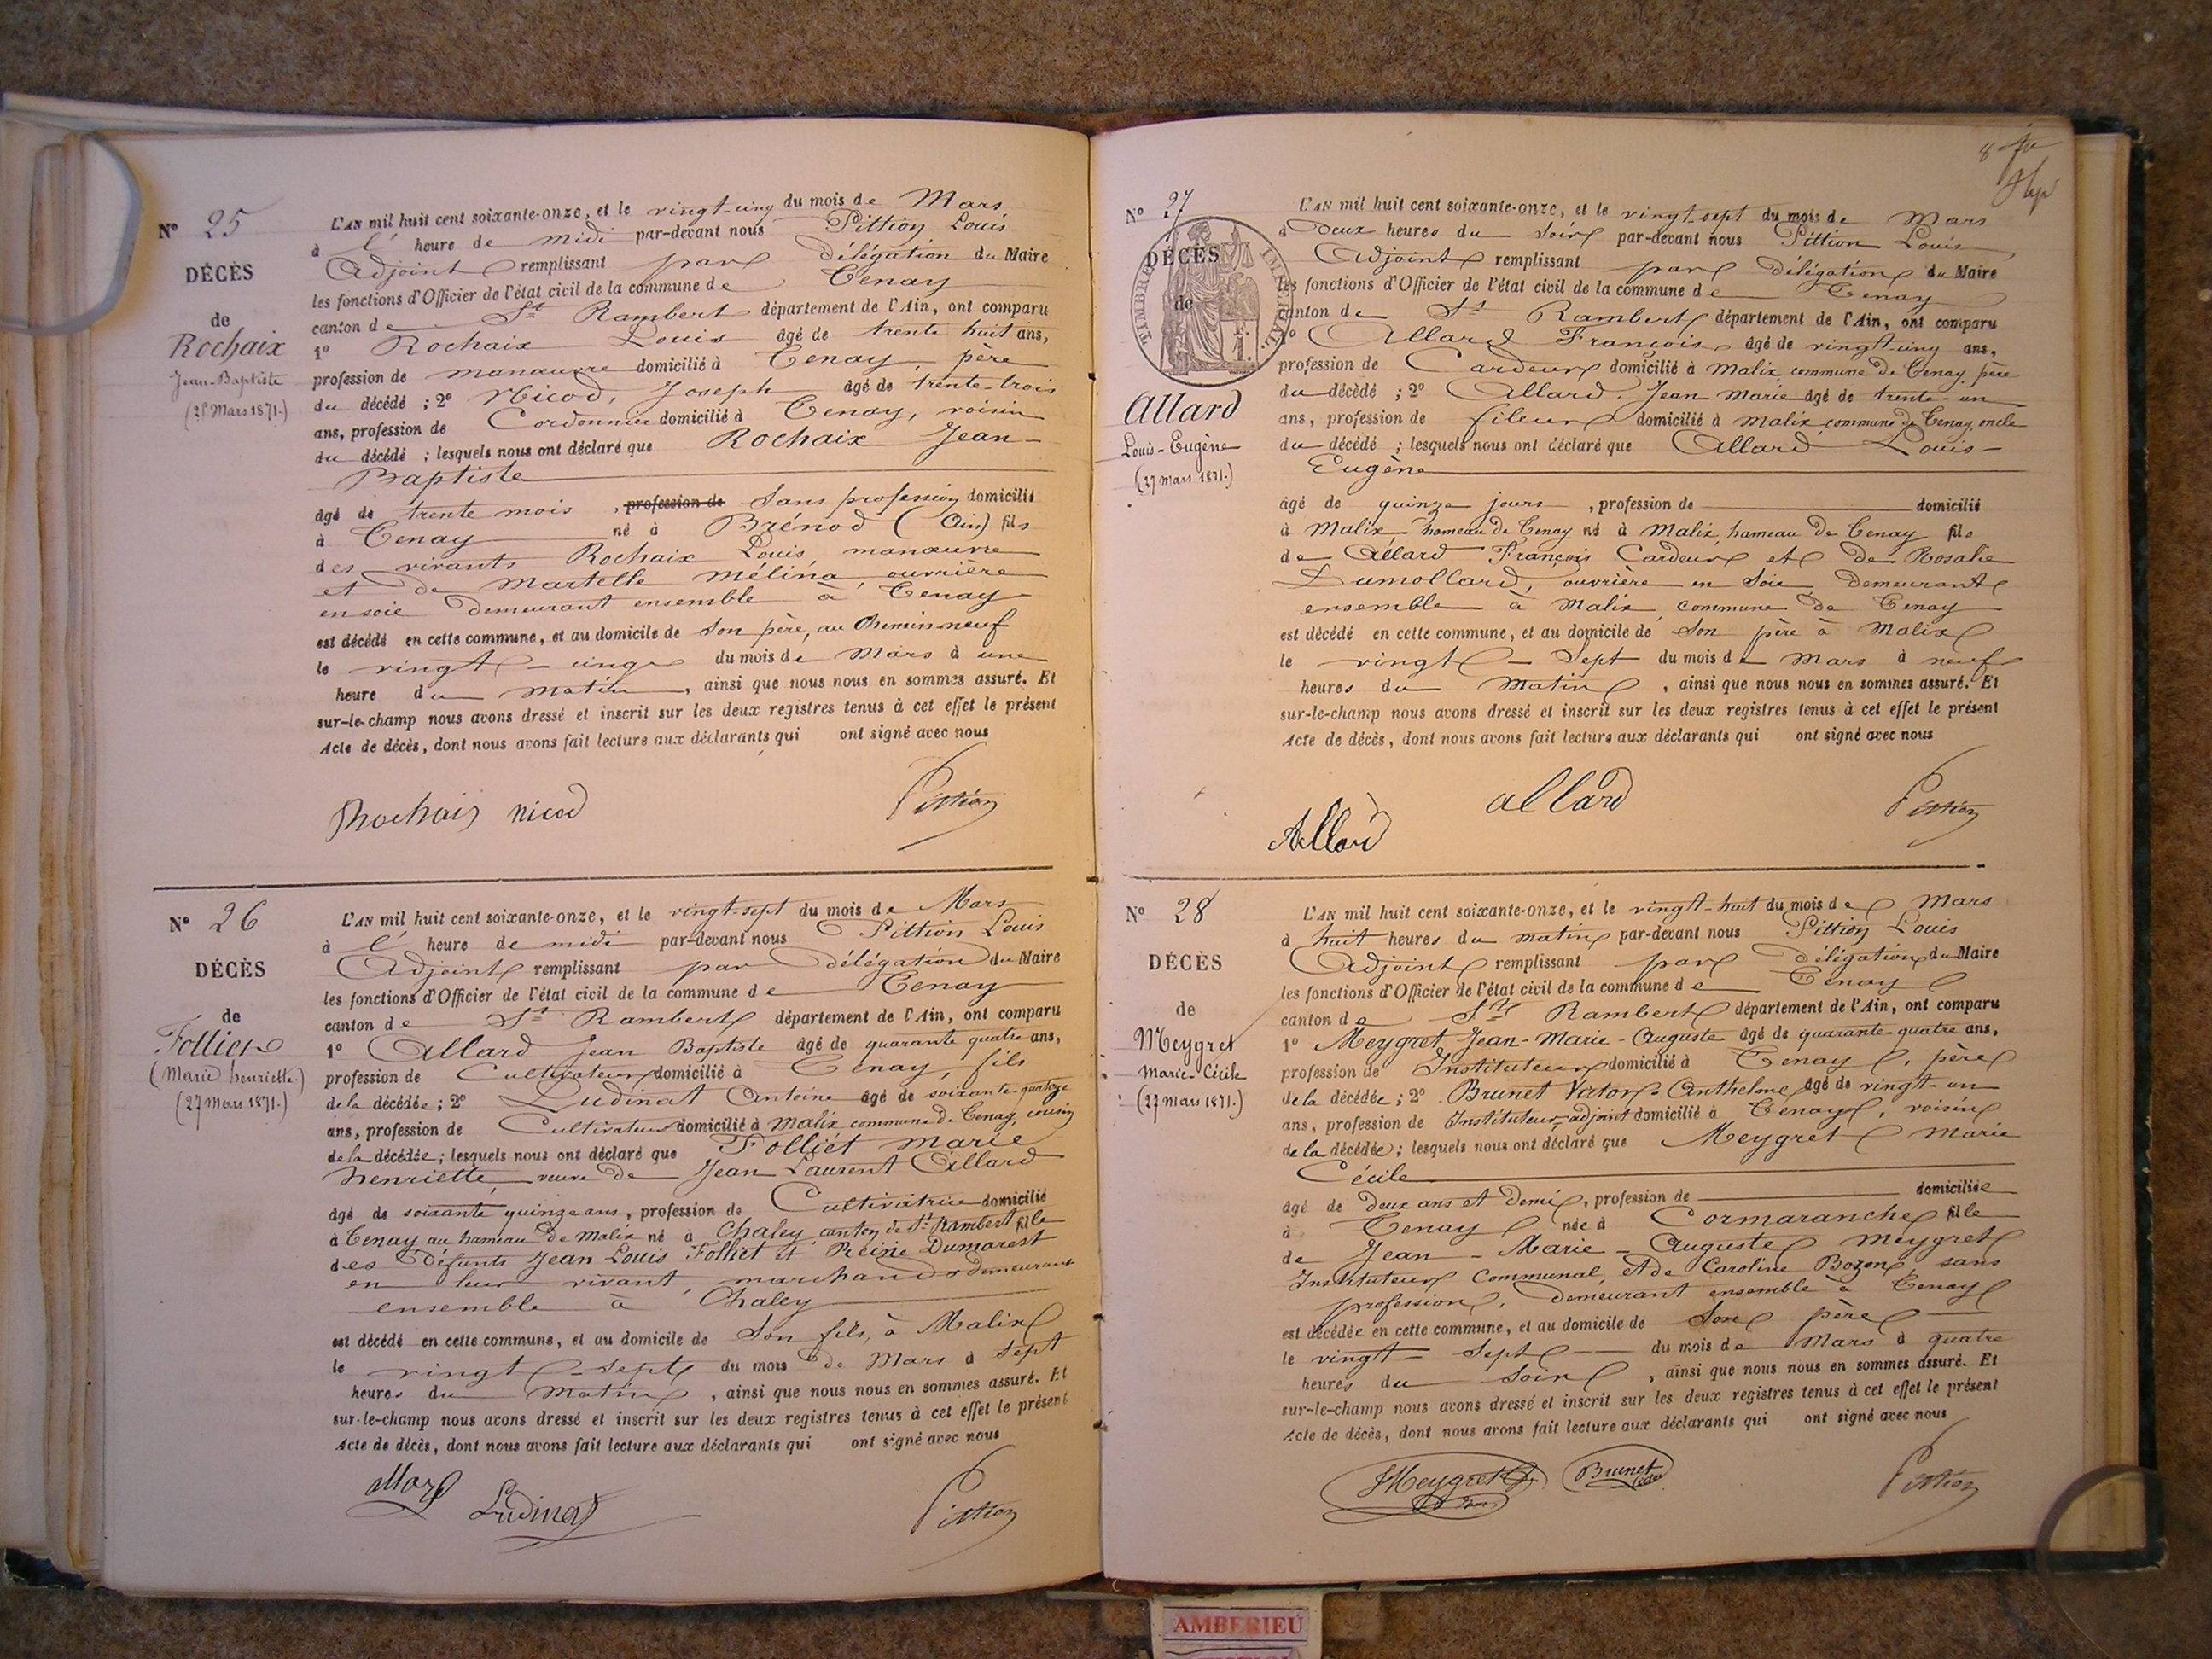 N° 25
DÉCÈS
de
Rochaix
Jean-Baptiste
(25 Mars 1871.)
L'AN mil huit cent soixante-onze, et le vingt-cinq du mois de Mars
à l' heure de midi par-devant nous Pittion Louis
Adjoint remplissant par délégation du Maire
les fonctions d'Officier de l'état civil de la commune de Tenay
canton de St Rambert département de l'Ain, ont comparu
1° Rochaix Louis âgé de trente huit ans,
profession de manœuvre domicilié à Tenay, père
du décédé ; 2° Nicod, Joseph âgé de trente-trois
ans, profession de Cordonnier domicilié à Tenay, voisin
du décédé ; lesquels nous ont déclaré que Rochaix Jean-
Baptiste
âgé de trente mois , profession de Sans profession domicilié
à Tenay né à Brénod (Ain) fils
des vivants Rochaix Louis, manœuvre
et de Martelle Mélina, ouvrière
en soie demeurant ensemble à Tenay
est décédé en cette commune, et au domicile de Son père, au Chemin-neuf
le vingt-cinq du mois de Mars à une
heure du matin , ainsi que nous nous en sommes assuré. Et
sur-le-champ nous avons dressé et inscrit sur les deux registres tenus à cet effet le présent
Acte de décès, dont nous avons fait lecture aux déclarants qui ont signé avec nous
Rochaix nicod Pittion
N° 26
DÉCÈS
de
Folliet
(Marie henriette)
(27 Mars 1871.)
L'AN mil huit cent soixante-onze, et le vingt-sept du mois de Mars
à l' heure de midi par-devant nous Pittion Louis
Adjoint remplissant par délégation du Maire
les fonctions d'Officier de l'état civil de la commune de Tenay
canton de St Rambert département de l'Ain, ont comparu
1° Allard Jean Baptiste âgé de quarante quatre ans,
profession de Cultivateur domicilié à Tenay, fils
de la décédée ; 2° Ludinat Antoine âgé de soixante-quatorze
ans, profession de Cultivateur domicilié à Malix commune de Tenay, cousin
de la décédée ; lesquels nous ont déclaré que Folliet Marie
henriette, veuve de Jean Laurent Allard
âgé de soixante quinze ans, profession de Cultivatrice domicilié
à Tenay au hameau de Malix né à Chaley canton de St Rambert fille
des défunts Jean Louis Folliet et Reine Dumarest
en leur vivant, marchands demeurant
ensemble à Chaley
est décédé en cette commune, et au domicile de Son fils, à Malix
le vingt-sept du mois de Mars à sept
heures du matin , ainsi que nous nous en sommes assuré. Et
sur-le-champ nous avons dressé et inscrit sur les deux registres tenus à cet effet le présent
Acte de décès, dont nous avons fait lecture aux déclarants qui ont signé avec nous
allard Ludinat Pittion
N° 27
DÉCÈS
de
TIMBRE IMPERIAL
Allard
Louis-Eugène
(27 mars 1871.)
L'AN mil huit cent soixante-onze, et le vingt-sept du mois de Mars
à deux heures du Soir par-devant nous Pittion Louis
Adjoint remplissant par délégation du Maire
les fonctions d'Officier de l'état civil de la commune de Tenay
canton de St Rambert département de l'Ain, ont comparu
1° Allard François âgé de vingt-cinq ans,
profession de Cardeur domicilié à Malix, commune de Tenay, père
du décédé ; 2° Allard Jean Marie âgé de trente-un
ans, profession de fileur domicilié à Malix commune de Tenay, oncle
du décédé ; lesquels nous ont déclaré que Allard Louis-
Eugène
âgé de quinze jours , profession de domicilié
à Malix hameau de Tenay né à Malix, hameau de Tenay fils
de Allard François Cardeur et de Rosalie
Dumollard, ouvrière en Soie, demeurant
ensemble à Malix commune de Tenay
est décédé en cette commune, et au domicile de Son père à Malix
le vingt-Sept du mois de Mars à neuf
heures du Matin , ainsi que nous nous en sommes assuré. Et
sur-le-champ nous avons dressé et inscrit sur les deux registres tenus à cet effet le présent
Acte de décès, dont nous avons fait lecture aux déclarants qui ont signé avec nous
Allard allard Pittion
N° 28
DÉCÈS
de
Meygret
Marie-Cécile
(27 mars 1871.)
L'AN mil huit cent soixante-onze, et le vingt-huit du mois de Mars
à huit heures du matin par-devant nous Pittion Louis
Adjoint remplissant par délégation du Maire
les fonctions d'Officier de l'état civil de la commune de Tenay
canton de St Rambert département de l'Ain, ont comparu
1° Meygret, Jean-Marie-Auguste âgé de quarante-quatre ans,
profession de Instituteur domicilié à Tenay, père
de la décédée ; 2° Brunet Victor-Anthelme âgé de vingt-un
ans, profession de Instituteur-adjoint domicilié à Tenay, voisin
de la décédée ; lesquels nous ont déclaré que Meygret Marie
Cécile
âgé de deux ans et demi, profession de domiciliée
à Tenay née à Cormaranche fille
de Jean-Marie-Auguste Meygret
Instituteur Communal, et de Caroline Bozon, sans
profession, demeurant ensemble à Tenay
est décédée en cette commune, et au domicile de Son père
le vingt-Sept du mois de Mars à quatre
heures du Soir , ainsi que nous nous en sommes assuré. Et
sur-le-champ nous avons dressé et inscrit sur les deux registres tenus à cet effet le présent
Acte de décès, dont nous avons fait lecture aux déclarants qui ont signé avec nous
Meygret Brunet Pittion
AMBERIEU